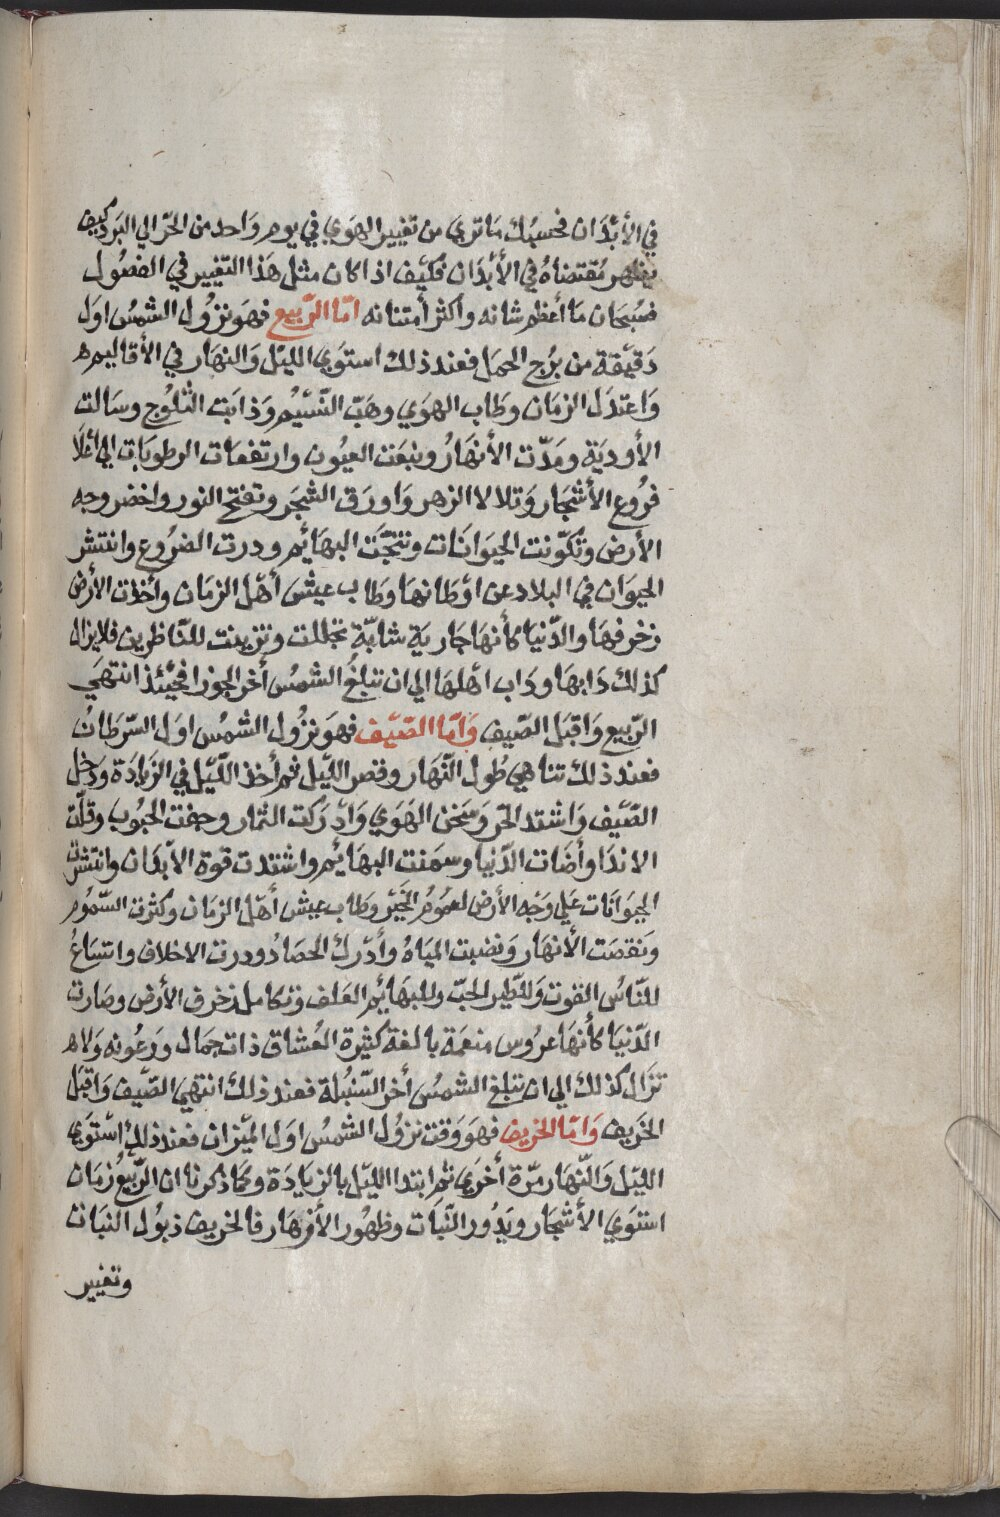 في الأبْدَان فحسبُك مَا تري من تغيير الهوَي في يوم وَاحد من الحرّ الي البَرد كيف
يظهر مُقتضاهُ في الأبْدَان فكيْف اذا كان مثل هَذا التّغيير في الفصُول
فسُبحَان مَا أعظم شانه وأكثر أمتنانه امّا الرّبيع فهوَ نزُول الشمسُ اول
دَقيْقة من برُج الحمَل فعند ذلك استوَي الليْل وَالنهَار في الأقاليم
وَاعتدَل الزمَان وطَاب الهوَي وهَبّ النّسيْم وَذابَت الثلوُج وسَالت
الأوديَة ومَدّت الأنهَارُ ونبعَت العيُون وارتفعَات الرطوبَات الي أعْلَا
فرُوع الأشْجَار وَتلالا الزهر وَاورَق الشجَر وتفتح النور واخضر وجه
الأرض وتكوّنت الحيوَانَات ونتجَت البهَائِم ودرت الضرُوع وانتشر
الحيوَان في البلاد عن اوْطانهَا وطَاب عيشُ أهْل الزمَان وأخذت الأرض
زخرفهَا والدّنيَا كأنهَا جَاريَة شابّة تجللت وتزينت للنّاظرين فلا يزال
كذلك دَابهَا ودَاب اهْلهَا الي ان تبلغُ الشمسُ أخر الجوزا فحيْئذ انتهَي
الرّبيع وَاقبَل الصّيف وَامّا الصّيْف فهوَ نزُول الشمسُ اوَل السّرطَانُ
فعند ذلك تناهي طُول النّهَار وقصر الليْل ثم أخذ اللّيْل في الزيَادَة ودَخل
الصّيْف وَاشتد الحرّ وَسَخن الهَوَي وَادْرَكت الثمار وجفت الحبُوب وقلّت
الاندَا وأضَات الدّنيَا وسمَنت البهَائِم واشتدت قوة الأبْدَان وانتشرت
الحيوَانَات عَلي وَجْه الأرض لعمُوم الخيْر وطَاب عيش أهْل الزمَان وكثرت السّمُوم
وَنقصَت الأنهَار وَنضبت الميَاهُ وأدْرك الحصَادُ ودرت الاخلاف وَاتسَاعُ
للنّاسُ القوت وَللطّير الحبّ وللبهَائِم العَلف وَتكامل زخرف الأرض وصَارت
الدّنيَا كأنهَا عرُوس منعمَة بَالغة كثيرة العُشاق ذات جمَال ورعُونه وَلا
تزَال كذلك الي ان تبلغ الشمسُ أخر السّنبُلة فعند ذلك انتهي الصّيف وَاقبَل
الخرَيف وَامّا الخريف فهوَ وَقت نزوُل الشمسُ اوَل الميْزان فعند ذلك اسْتوَي
الليْل وَالنّهَار مرّة أخرَي ثم ابتدا الليْل بالزيَادَة وَكمَا ذكرنا ان الرّبيعُ زمَان
استوَي الأشْجَار وبَدُور النّبَات وظهُور الأزهَار فالخريف ذبوُل النبَات
وتغيير